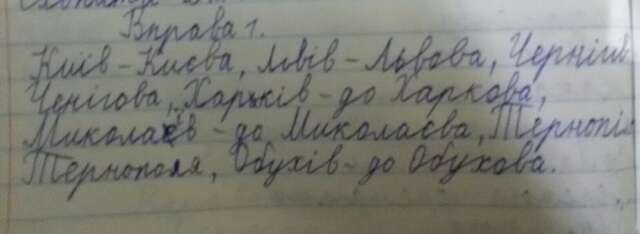 Вправа 1.
Київ - Києва, Львів - Львова, Чернігів
Ченігова, Харьків - до Харкова,
Миколаєв - до Миколаєва, Тернопіль
Тернополя, Обухів - до Обухова.